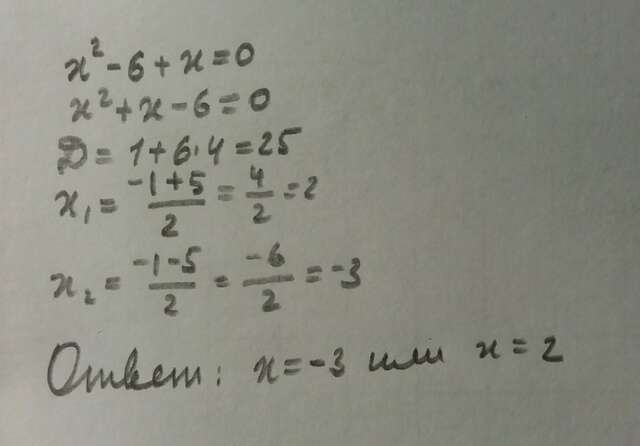 x² - 6 + x = 0
x² + x - 6 = 0
Д = 1 + 6·4 = 25
x₁ = (-1+5)/2 = 4/2 = 2
x₂ = (-1-5)/2 = -6/2 = -3
Ответ: x = -3 или x = 2